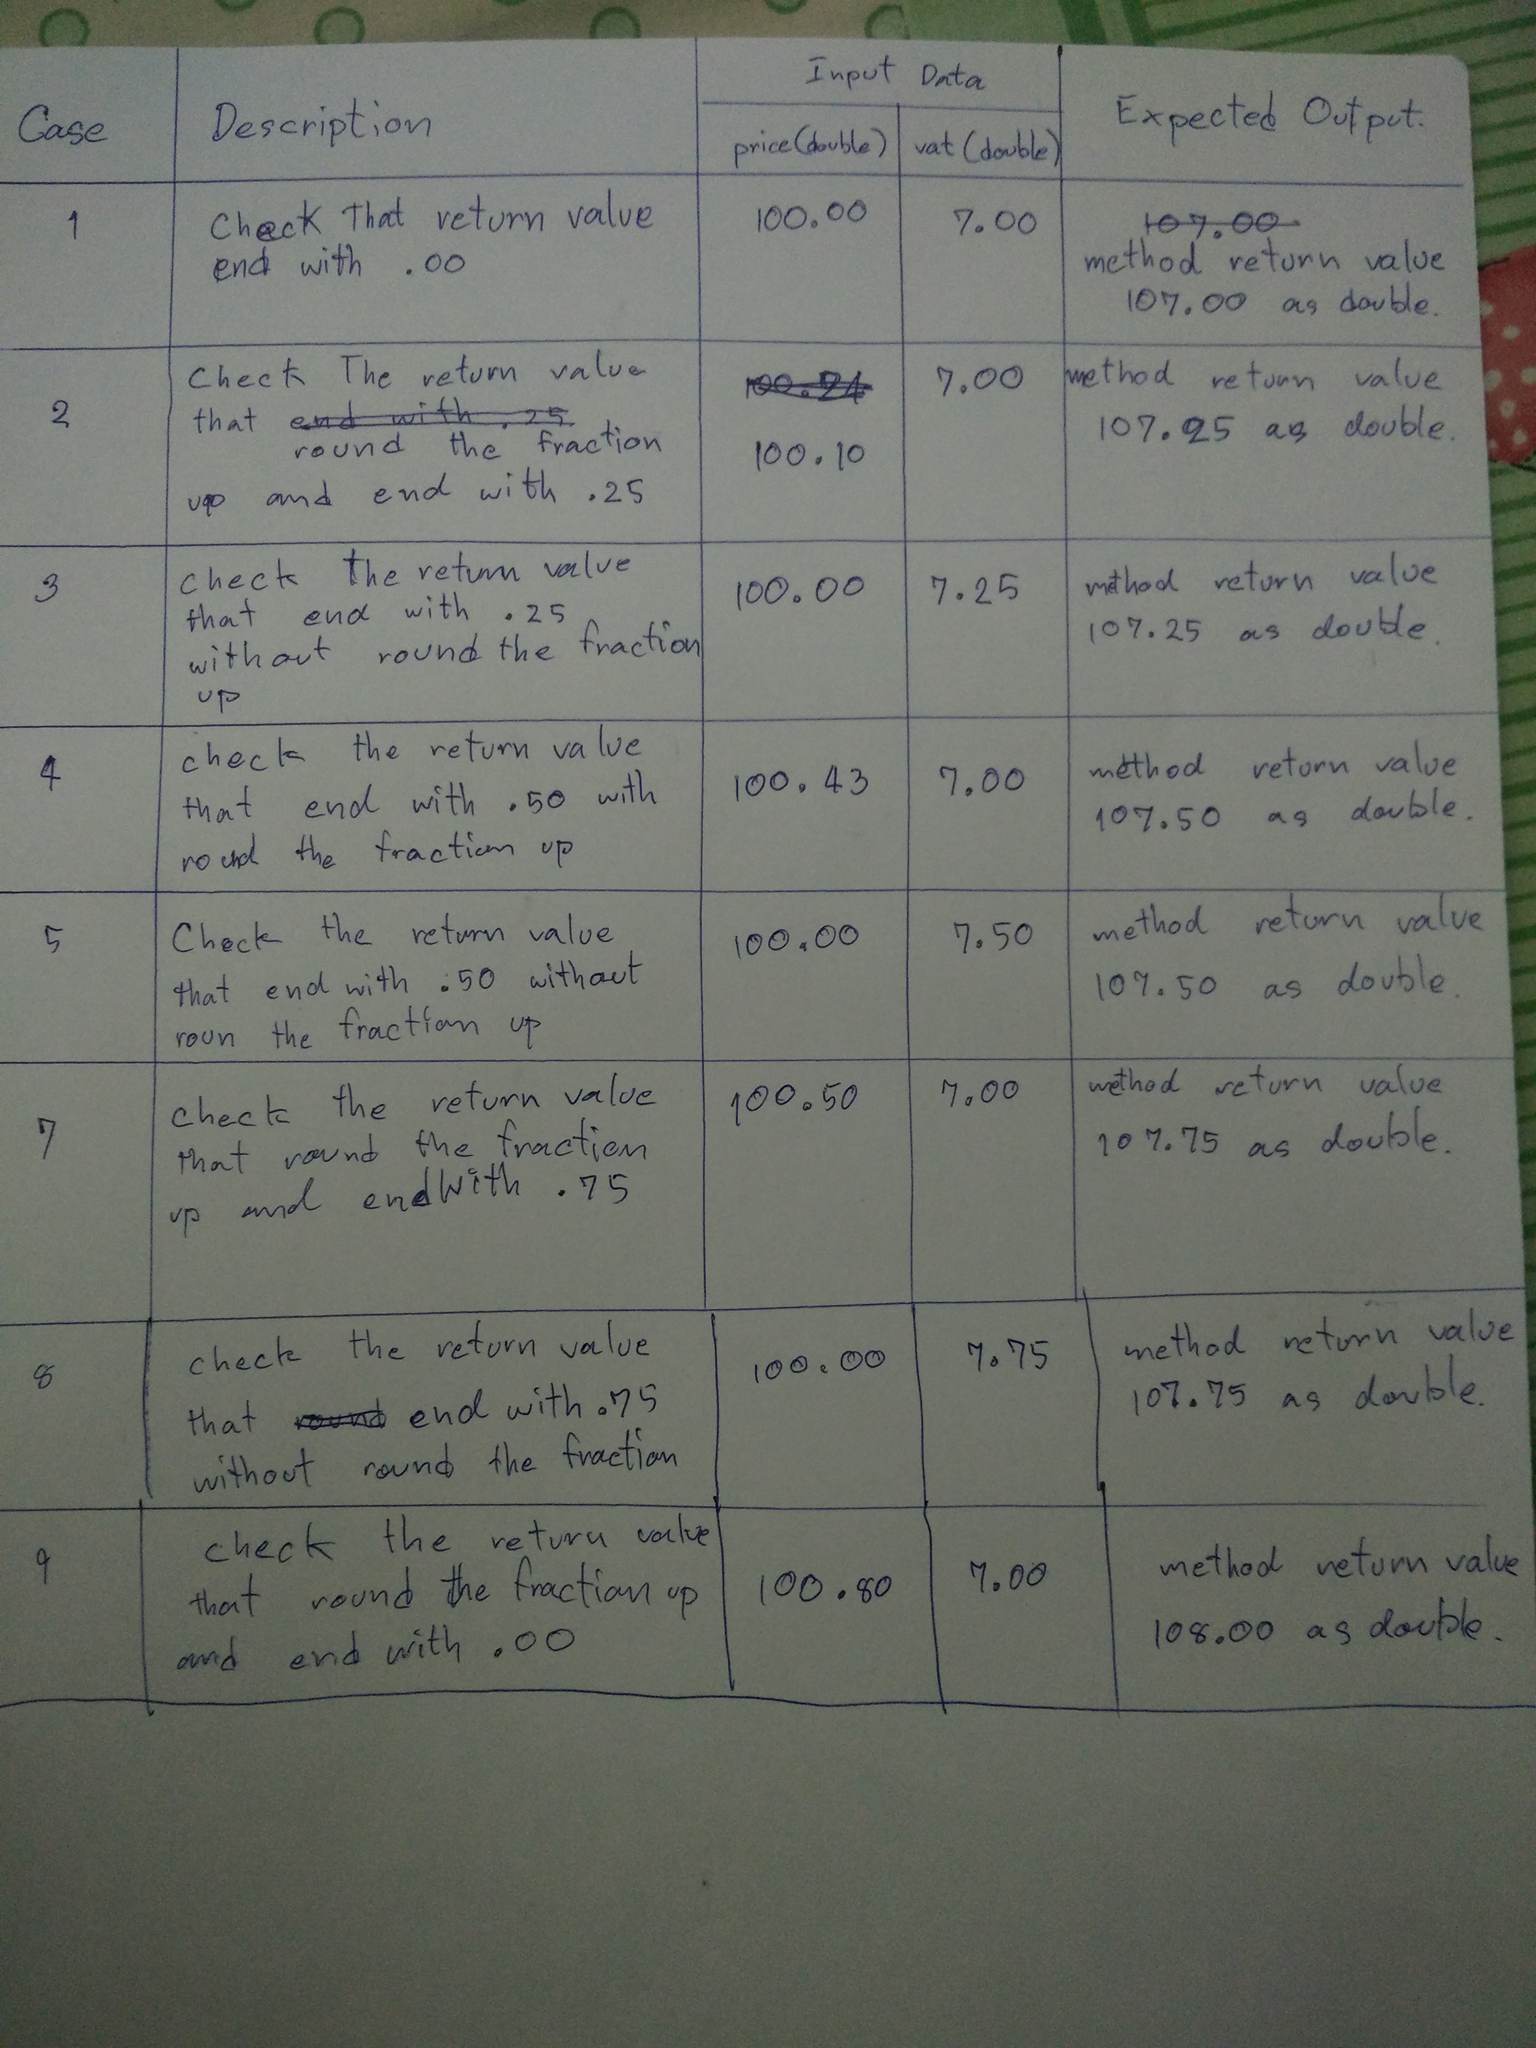 Case
Description
Input Data
price (double)
vat (double)
Expected Output.
1
Check That return value
end with .00
100.00
7.00
107.00
method return value
107.00 as double.
2
Check The return value
that end with .25
round the fraction
up and end with .25
100.24
100.10
7.00
method return value
107.25 as double.
3
check the return value
that end with .25
without round the fraction
up
100.00
7.25
method return value
107.25 as double.
4
check the return value
that end with .50 with
round the fraction up
100.43
7.00
method return value
107.50 as double.
5
Check the return value
that end with .50 without
roun the fraction up
100.00
7.50
method return value
107.50 as double.
7
check the return value
that round the fraction
up and end with .75
100.50
7.00
method return value
107.75 as double.
8
check the return value
that round end with .75
without round the fraction
100.00
7.75
method return value
107.75 as double.
9
check the return value
that round the fraction up
and end with .00
100.80
7.00
method return value
108.00 as double.